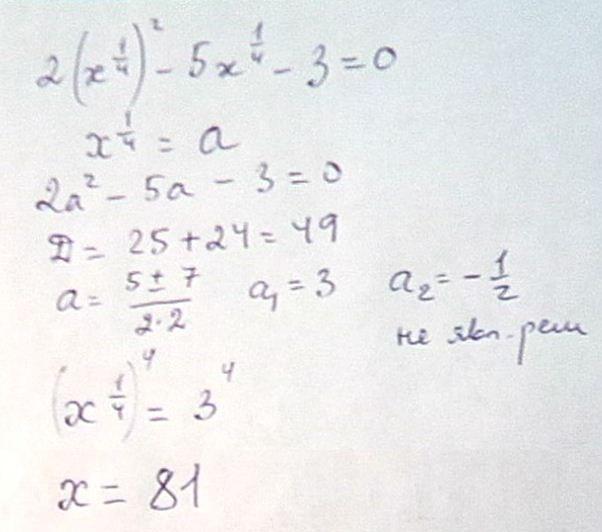 2(x^{1/4})^2 - 5x^{1/4} - 3 = 0
x^{1/4} = a
2a^2 - 5a - 3 = 0
D = 25 + 24 = 49
a = (5 ± 7)/(2·2) a_1 = 3 a_2 = -1/2
не явл. реш
(x^{1/4})^4 = 3^4
x = 81